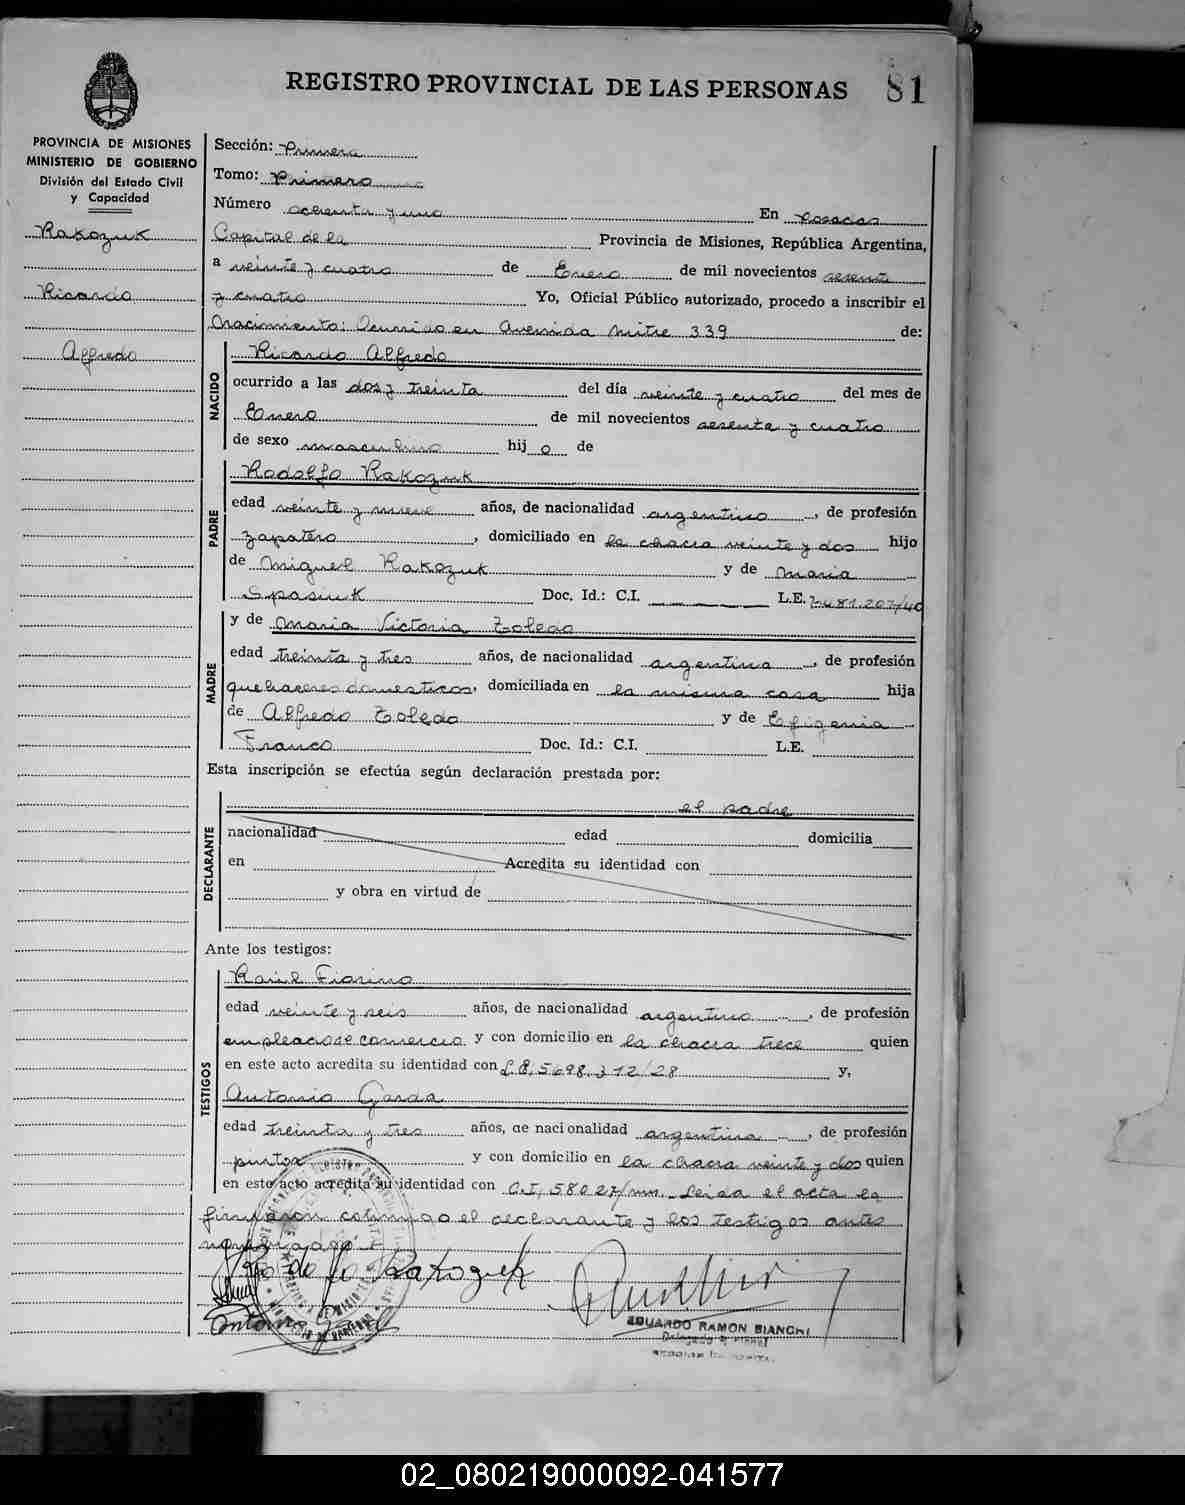 REGISTRO PROVINCIAL DE LAS PERSONAS 81
PROVINCIA DE MISIONES
MINISTERIO DE GOBIERNO
División del Estado Civil
y Capacidad
Rakozuk
Ricardo
Alfredo
Sección: Primera
Tomo: Primero
Número ochenta y uno En Posadas
Capital de la Provincia de Misiones, República Argentina,
a veinte y cuatro de Enero de mil novecientos sesenta
y cuatro Yo, Oficial Público autorizado, procedo a inscribir el
Nacimiento: Ocurrido en Avenida Mitre 339 de:
NACIDO
Ricardo Alfredo
ocurrido a las dos y treinta del día veinte y cuatro del mes de
Enero de mil novecientos sesenta y cuatro
de sexo masculino hij o de
PADRE
Rodolfo Rakozuk
edad veinte y nueve años, de nacionalidad argentino, de profesión
zapatero, domiciliado en la chacra veinte y dos hijo
de Miguel Rakozuk y de Maria
Spasiuk Doc. Id.: C.I. L.E. 7.481.207/40
MADRE
y de Maria Victoria Toledo
edad treinta y tres años, de nacionalidad argentina, de profesión
quehaceres domesticos, domiciliada en la misma casa hija
de Alfredo Toledo y de Efigenia
Franco Doc. Id.: C.I. L.E.
Esta inscripción se efectúa según declaración prestada por:
DECLARANTE
el padre
nacionalidad edad domicilia
en Acredita su identidad con
y obra en virtud de
Ante los testigos:
TESTIGOS
Raúl Fiorino
edad veinte y seis años, de nacionalidad argentino, de profesión
empleado de comercio y con domicilio en la chacra trece quien
en este acto acredita su identidad con L.E. 5698.312/28 y,
Antonio Garda
edad treinta y tres años, de nacionalidad argentina, de profesión
pintor y con domicilio en la chacra veinte y dos quien
en este acto acredita su identidad con C.I. 58027/mn. Leida el acta la
firmaron conmigo el declarante y los testigos antes
Rodolfo Rakozuk
Antonio
EDUARDO RAMON BIANCHI
02_080219000092-041577